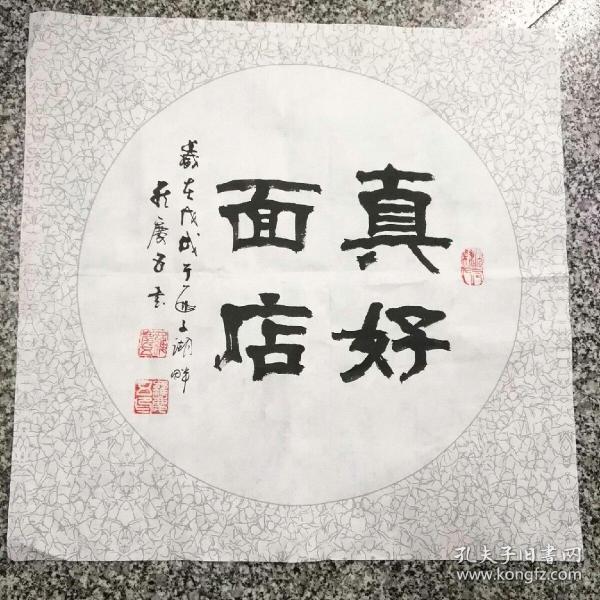 真好
面店
歲在戊戌于
湖畔
慶
書
孔夫子旧书网
www.kongfz.com